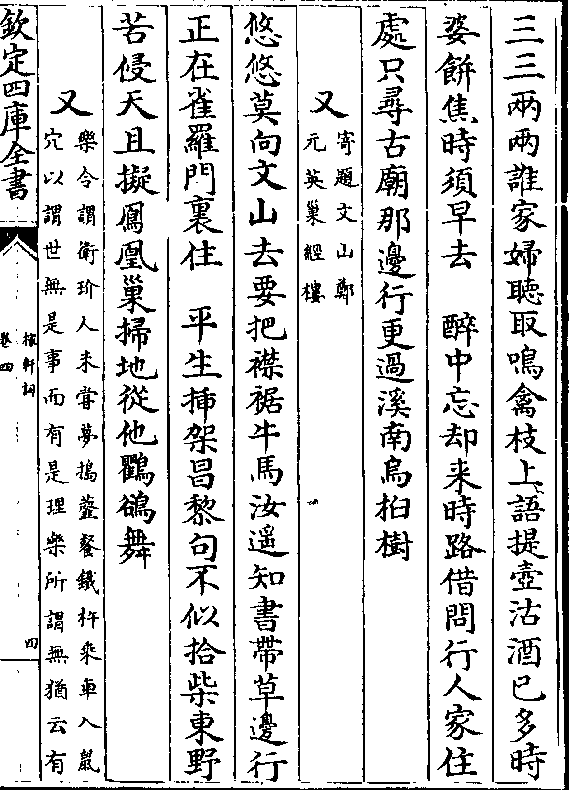 三三兩兩誰家婦聴取鳴禽枝上語提壺沽酒已多時
婆餅焦時須早去　醉中忘却来時路借問行人家住
處只尋古廟那邊行更過溪南烏桕樹
又寄題文山鄭
元英巢經樓
悠悠莫向文山去要把襟裾牛馬汝遥知書帶草邊行
正在雀羅門裏住　平生揷架昌黎句不似拾柴東野
苦侵天且擬鳳凰巢掃地從他鸜鵒舞
又樂令謂衛玠人未嘗夢搗虀餐鐵杵乘車入鼠
穴以謂世無是事而有是理樂所謂無猶云有
欽定四庫全書
稼軒詞
卷四
四